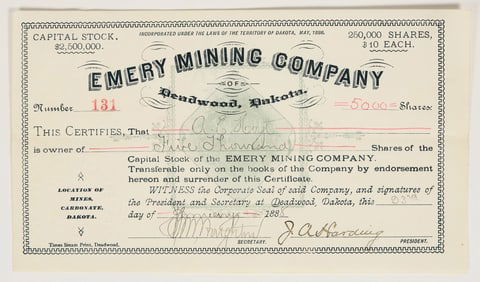 INCORPORATED UNDER THE LAWS OF THE TERRITORY OF DAKOTA, MAY, 1886.
CAPITAL STOCK,
$2,500,000.
250,000 SHARES,
$10 EACH.
EMERY MINING COMPANY
OF
Deadwood, Dakota.
Number 131
5000 Shares
THIS CERTIFIES, That A. E.
is owner of Five Thousand Shares of the
Capital Stock of the EMERY MINING COMPANY.
Transferable only on the books of the Company by endorsement
hereon and surrender of this Certificate.
WITNESS the Corporate Seal of said Company, and signatures of
the President and Secretary at Deadwood, Dakota, this 23rd
day of January 1888
LOCATION OF
MINES,
CARBONATE,
DAKOTA.
J. A. Harding
SECRETARY.
PRESIDENT.
Times Steam Print, Deadwood.